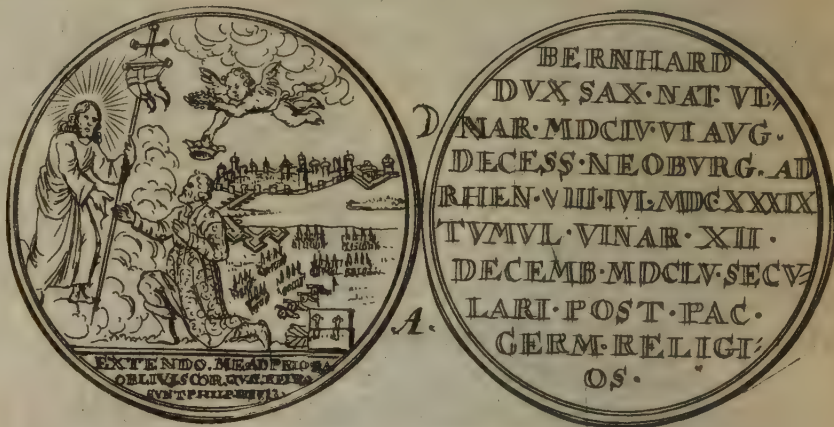 EXTENDO. ME AD PRIORA
OBLIVISCOR. QVÆ RETRO
SVNT PHILP
D
A.
BERNHARD
DVX SAX·NAT·VI-
NAR·MDCIV·VI AVG·
DECESS·NEOBVRG·AD
RHEN·VIII·IVL·MDCXXXIX
TVMVL·VINAR·XII·
DECEMB·MDCLV·SECV-
LARI·POST·PAC·
GERM·RELIGI-
OS·